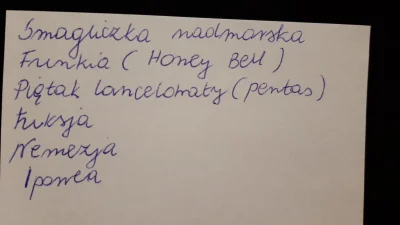 Smagliczka nadmorska
Funkia (Honey Bell)
Piątak lancelowaty (pentas)
Fuksja
Nemezja
Ipomea